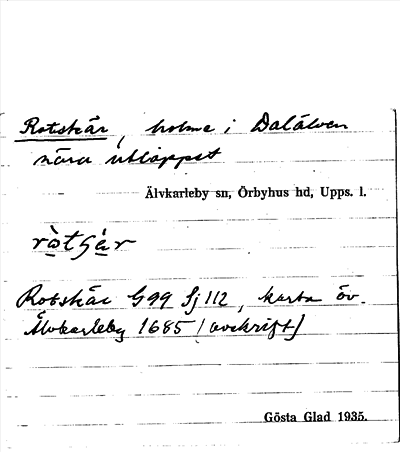 Rotskär, holme i Dalälven
nära utloppet
Älvkarleby sn, Örbyhus hd, Upps. l.
rò̱tsä̱́r
Rotskär G99 Sj 112, karta öv.
Älvkarleby 1685 (avskrift)
Gösta Glad 1935.